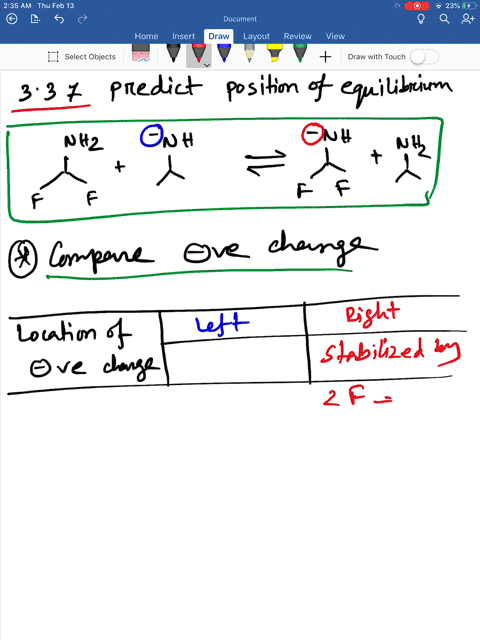 2:35 AM Thu Feb 13
23%
Document
Home Insert Draw Layout Review View
Select Objects
Draw with Touch
3.37 predict position of equilibrium
NH2 + ⊖NH ⇌ ⊖NH + NH2
F F F F
* Compare ⊖ve charge
Location of ⊖ve charge
Left
Right
Stabilized by
2 F -